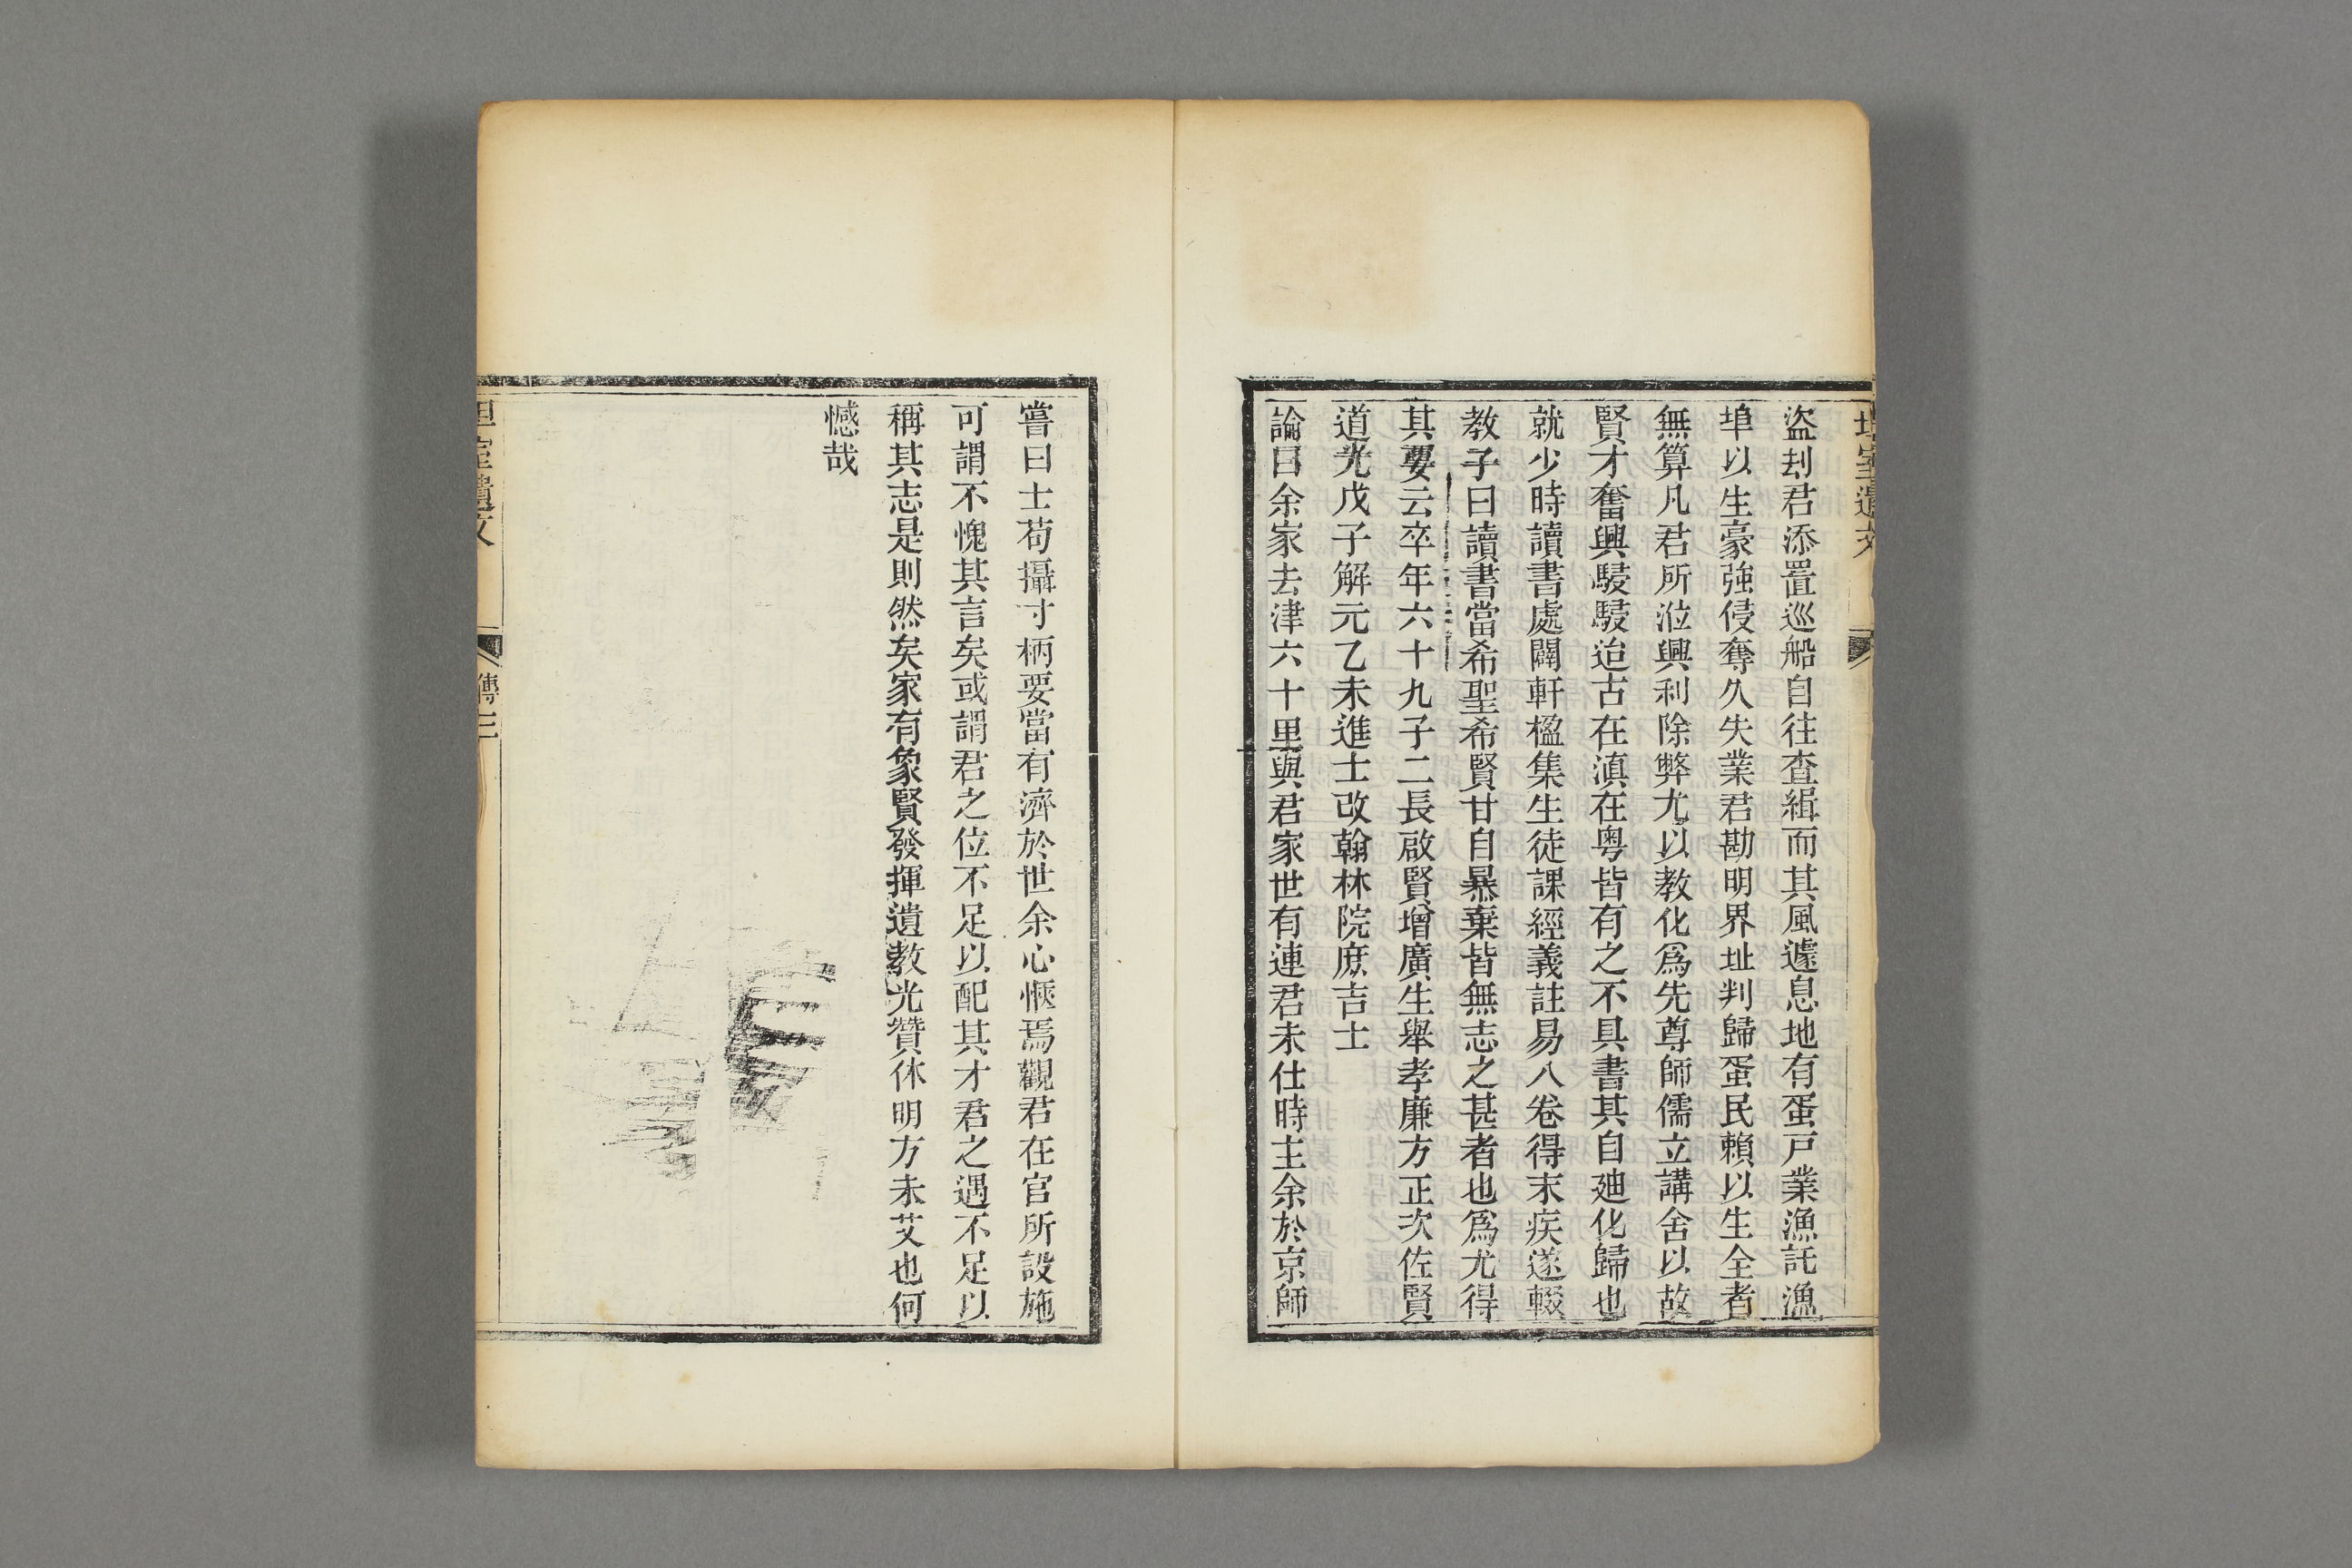 盜刦君添置巡船自往查緝而其風遽息地有蛋戸業漁託漁
埠以生豪強侵奪久失業君勘明界址判歸蛋民賴以生全者
無算凡君所涖興利除弊尤以教化爲先尊師儒立講舍以故
賢才奮興駸駸迨古在滇在粤皆有之不具書其自廸化歸也
就少時讀書處闢軒楹集生徒課經義註易八卷得末疾遂輟
教子曰讀書當希聖希賢甘自暴棄皆無志之甚者也爲尤得
其要云卒年六十九子二長啟賢增廣生舉孝廉方正次佐賢
道光戊子解元乙未進士改翰林院庶吉士
論曰余家去津六十里與君家世有連君未仕時主余於京師
嘗曰士苟攝寸柄要當有濟於世余心愜焉觀君在官所設施
可謂不愧其言矣或謂君之位不足以配其才君之遇不足以
稱其志是則然矣家有象賢發揮遺教光贊休明方未艾也何
憾哉
室遺文
傳
三